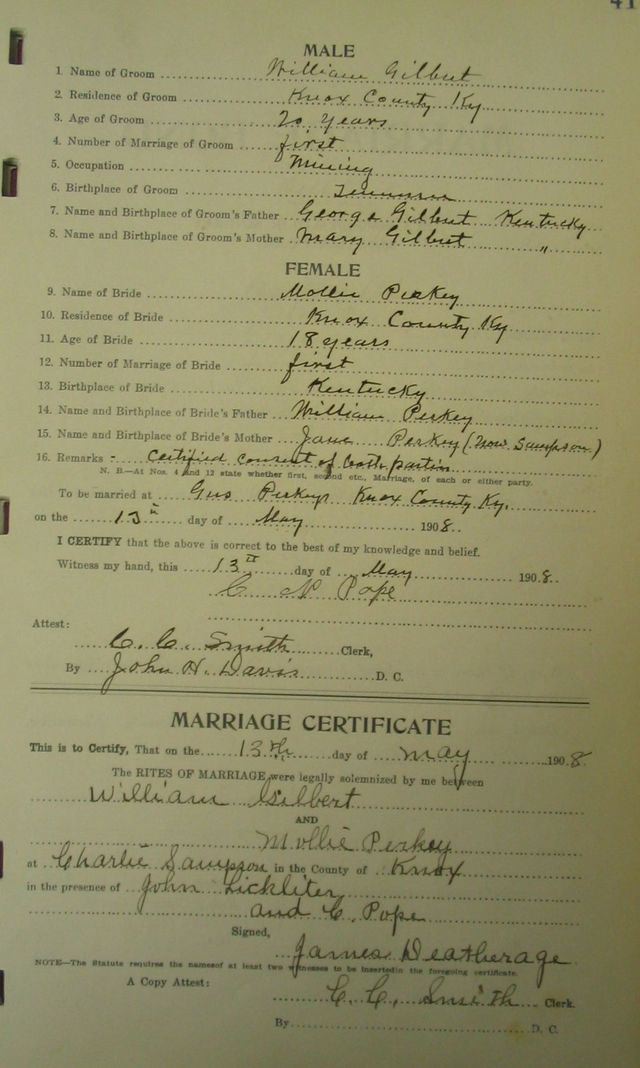 41
MALE
1. Name of Groom William Gilbert
2. Residence of Groom Knox County Ky
3. Age of Groom 20 years
4. Number of Marriage of Groom first
5. Occupation Mining
6. Birthplace of Groom Tennessee
7. Name and Birthplace of Groom's Father George Gilbert Kentucky
8. Name and Birthplace of Groom's Mother Mary Gilbert "
FEMALE
9. Name of Bride Mollie Perkey
10. Residence of Bride Knox County Ky
11. Age of Bride 18 years
12. Number of Marriage of Bride first
13. Birthplace of Bride Kentucky
14. Name and Birthplace of Bride's Father William Perkey
15. Name and Birthplace of Bride's Mother Jane Perkey (Now Sampson)
16. Remarks - Certified consent of both parties
N. B.—At Nos. 4 and 12 state whether first, second etc., Marriage, of each or either party.
To be married at Gus Perkeys Knox County Ky.
on the 13th day of May 1908
I CERTIFY that the above is correct to the best of my knowledge and belief.
Witness my hand, this 13th day of May 1908
C N Pope
Attest:
C. C. Smith Clerk,
By John H. Davis D. C.
MARRIAGE CERTIFICATE
This is to Certify, That on the 13th day of May 1908
The RITES OF MARRIAGE were legally solemnized by me between
William Gilbert
AND
Mollie Perkey
at Charlie Sampson in the County of Knox
in the presence of John Lickliter
and C. Pope
Signed,
James Weatherage
NOTE—The Statute requires the names of at least two witnesses to be inserted in the foregoing certificate.
A Copy Attest:
C. C. Smith Clerk.
By D. C.